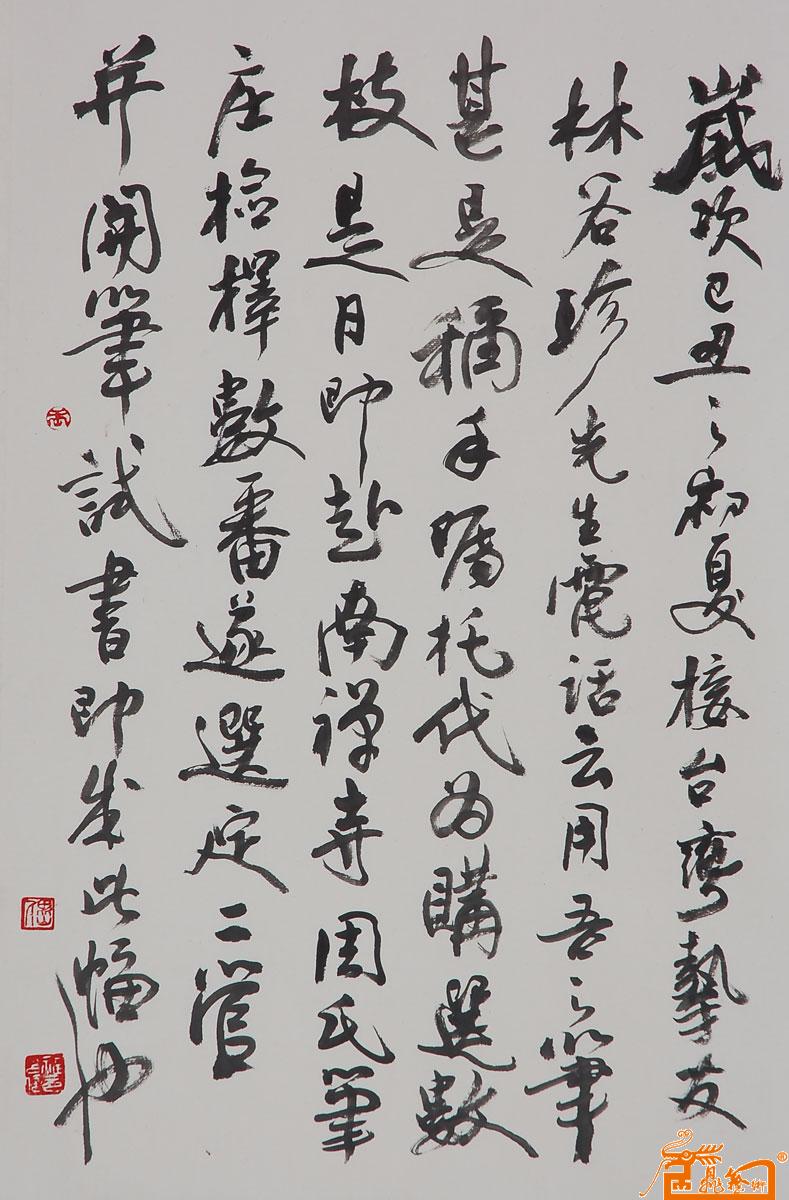 歲次己丑之初夏接台灣摯友
林谷珍先生電話云用吾之筆
甚是稱手囑托代為購選數
枝是月即赴南禅寺周氏筆
庄檢擇數番遂選定二管
并開筆試書即成此幅也